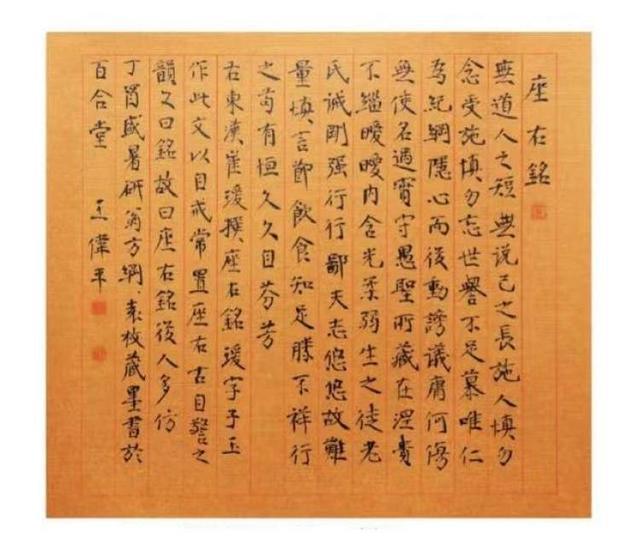 座右銘
無道人之短無説己之長施人慎勿
念受施慎勿忘世譽不足慕唯仁
為紀綱隱心而後動謗議庸何傷
無使名過實守愚聖所藏在涅貴
不緇曖曖內含光柔弱生之徒老
氏誡剛强行行鄙夫志悠悠故難
量慎言節飲食知足勝不祥行
之苟有恒久久自芬芳
右東漢崔瑗撰座右銘瑗字子玉
作此文以自戒常置座右古自警之
韻文曰銘故曰座右銘後人多仿
丁酉盛暑研翁方綱袁枚藏墨書於
百合堂 王偉平